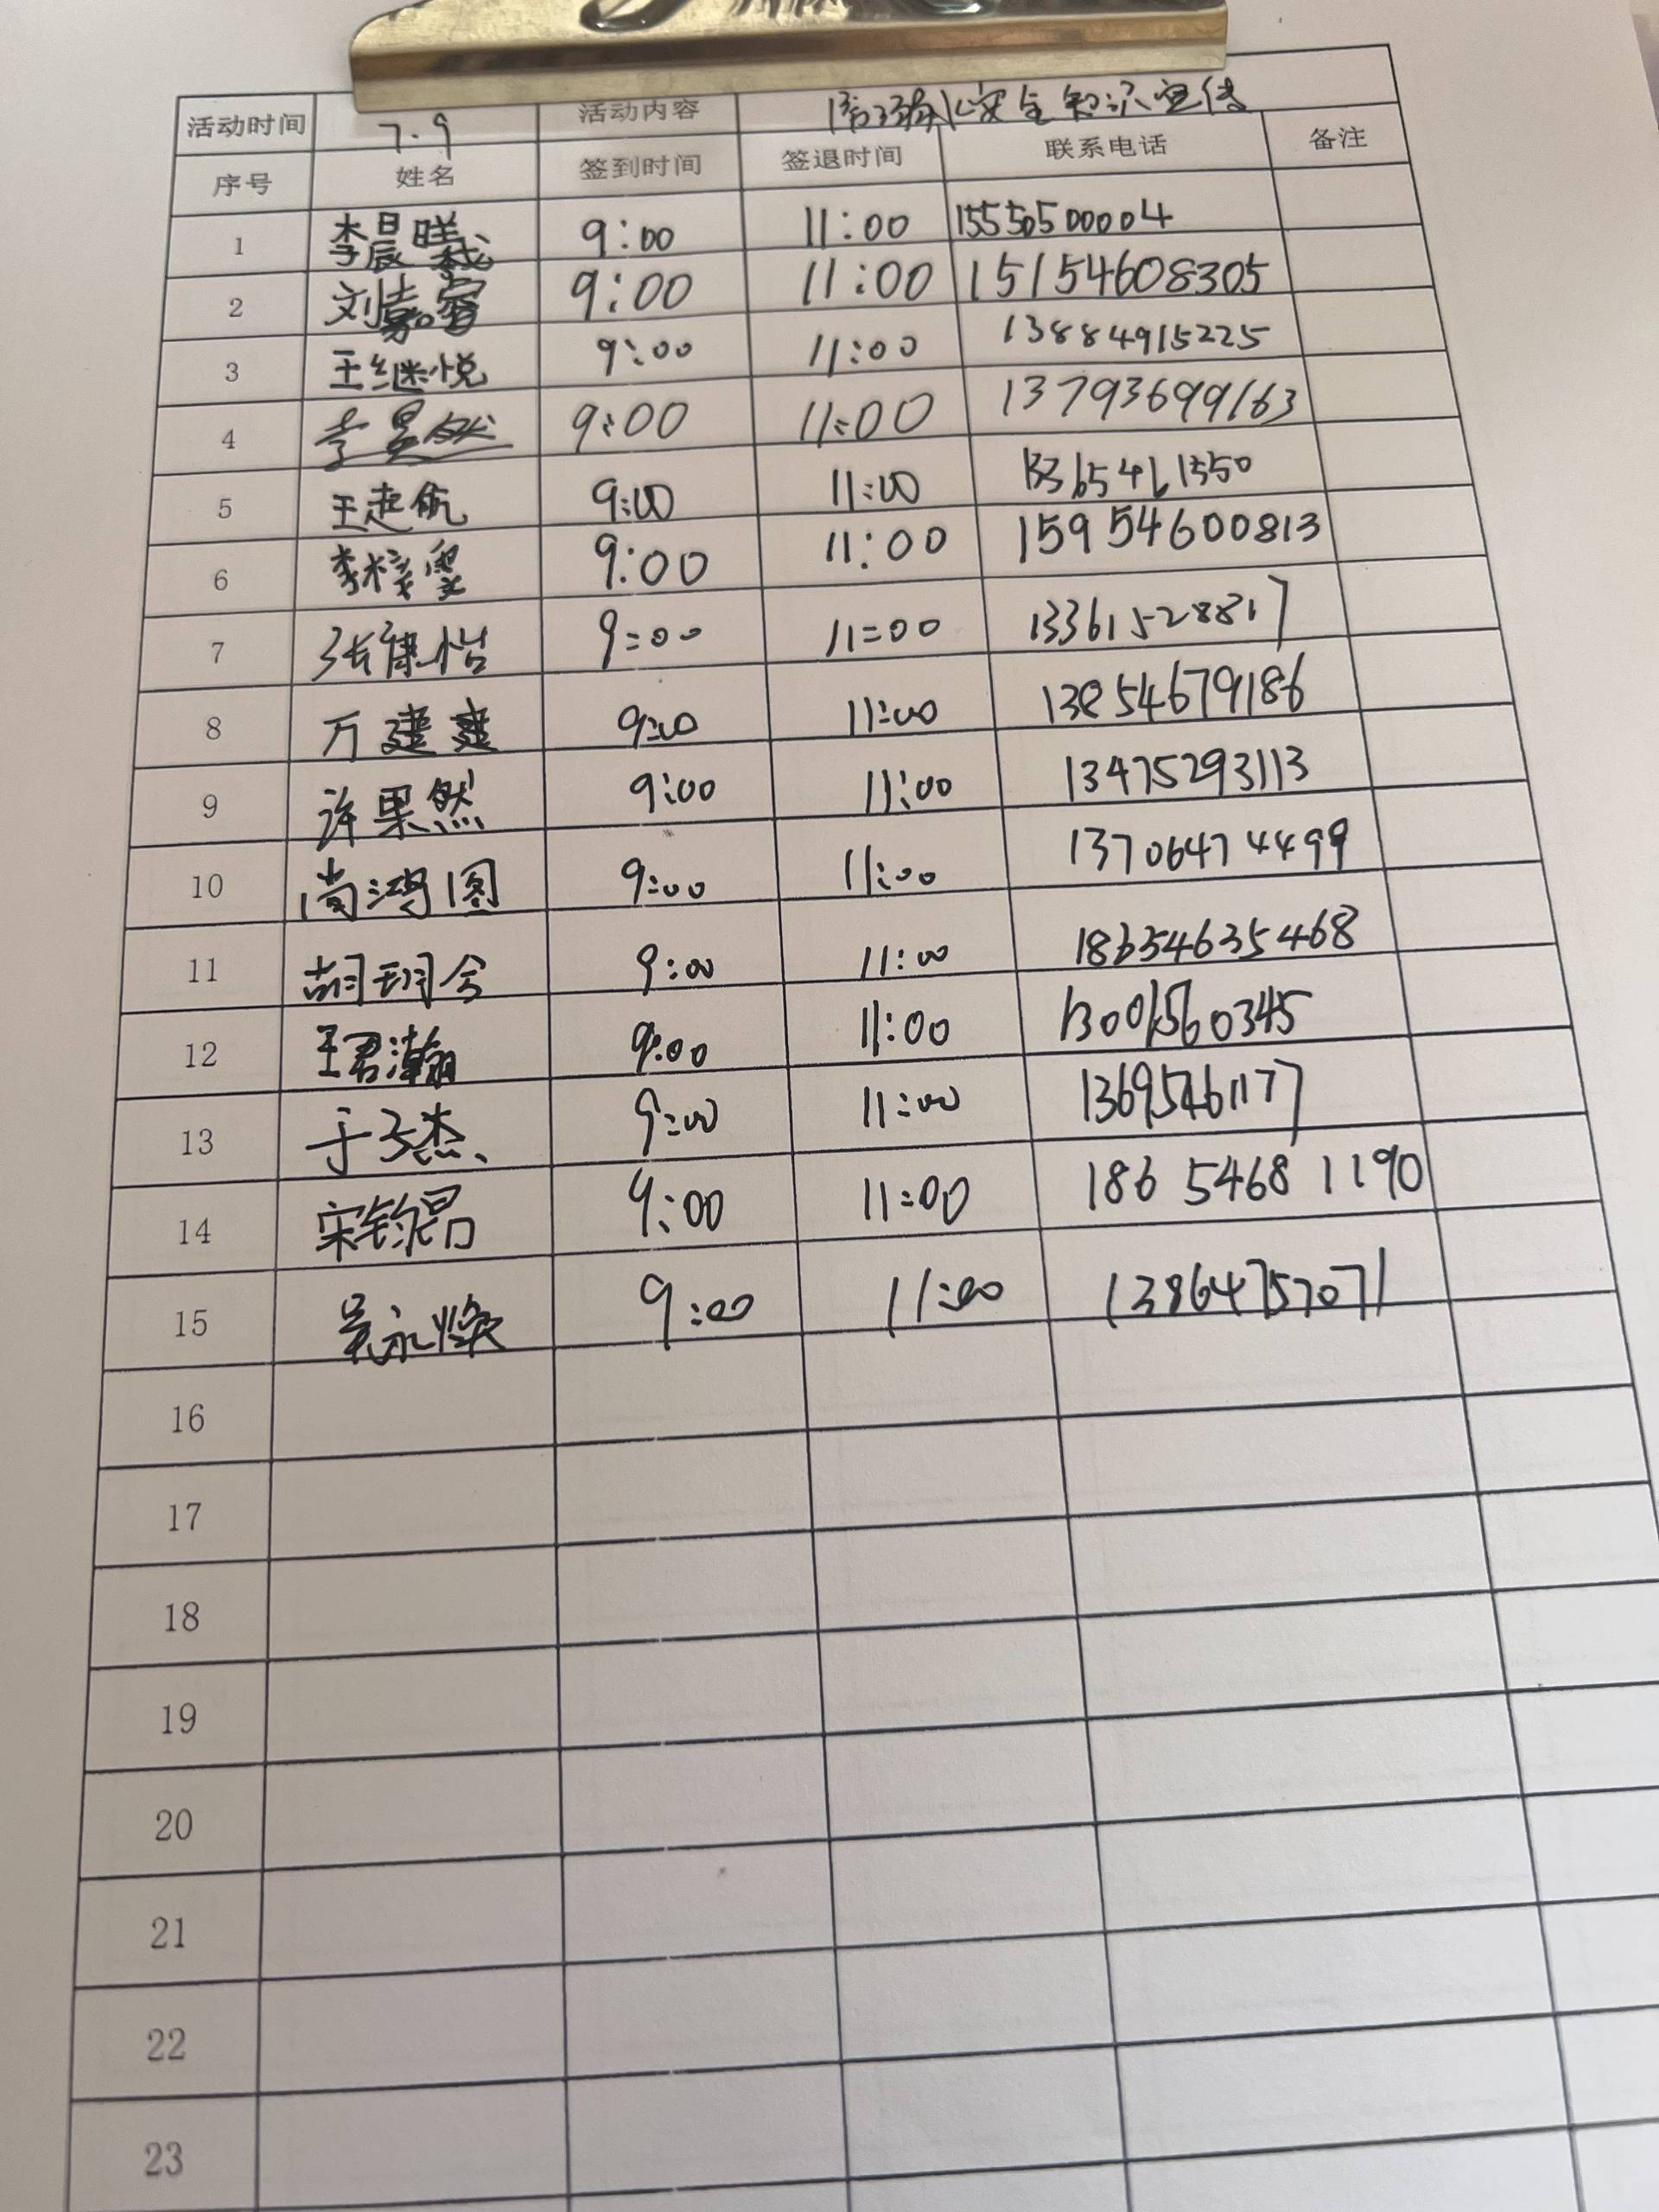 活动时间 7.9 活动内容 防溺水安全知识宣传
序号 姓名 签到时间 签退时间 联系电话 备注
1 李晨 9:00 11:00 15550500004
2 刘嘉睿 9:00 11:00 15154608305
3 王继悦 9:00 11:00 13884915225
4 李昊然 9:00 11:00 13793699163
5 王起航 9:00 11:00 13365461550
6 李梓雯 9:00 11:00 15954600813
7 张康怡 9:00 11:00 13361528817
8 万建建 9:00 11:00 13854679186
9 许果然 9:00 11:00 13475293113
10 尚鸿图 9:00 11:00 13706474499
11 胡玥含 9:00 11:00 18654635468
12 王君瀚 9:00 11:00 13001560345
13 于子杰 9:00 11:00 13695461177
14 宋钦昂 9:00 11:00 186 5468 1190
15 吴永焕 9:00 11:00 13864757071
16
17
18
19
20
21
22
23